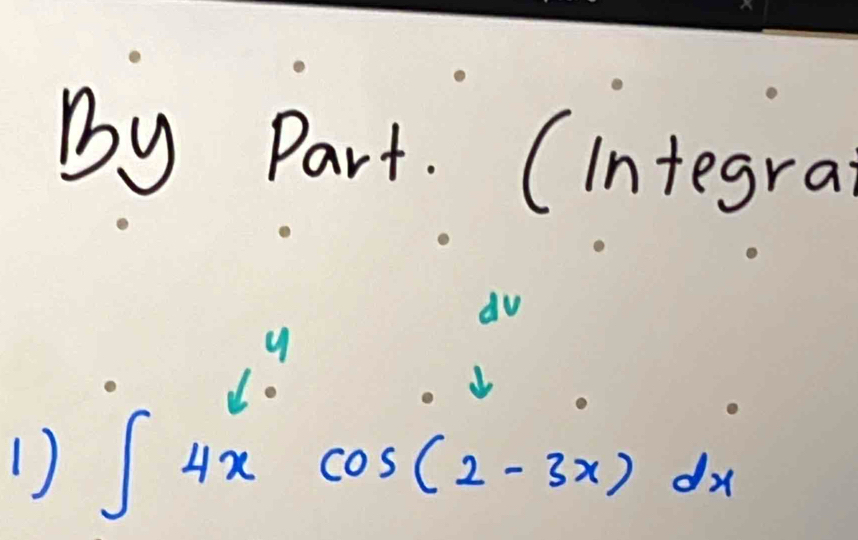 By Part. (Integra
u dv
1) ∫ 4x cos(2 - 3x) dx